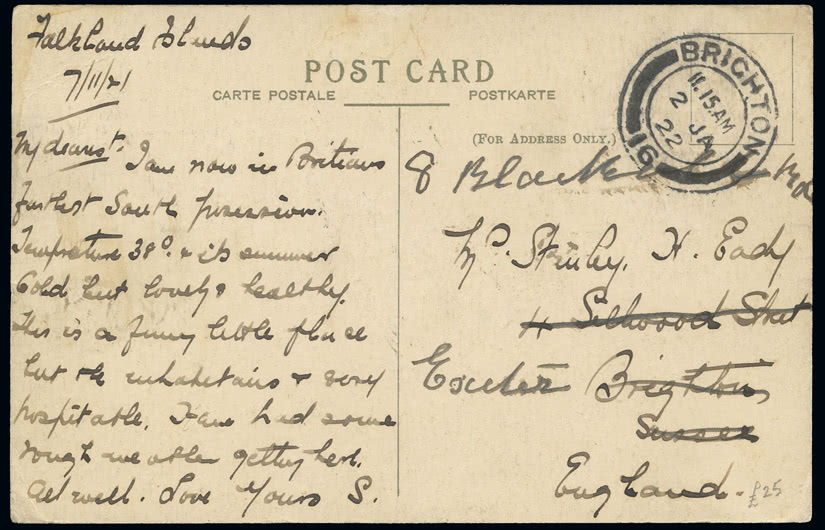 Falkland Islands
7/11/21
My dearest. I am now in Britians
furthest South possession.
Temprature 38° & its summer
Cold but lovely & healthy.
This is a funny little place
but the inhabitains & very
hospitable. I have had some
rough weather getting here.
All well. Love Yours S.
POST CARD
CARTE POSTALE
POSTKARTE
(FOR ADDRESS ONLY.)
BRIGHTON
11.15 AM
2 JA
22
16
8 Rd
H. Eady
Street
Exeter Brighton
Sussex
England.
£25